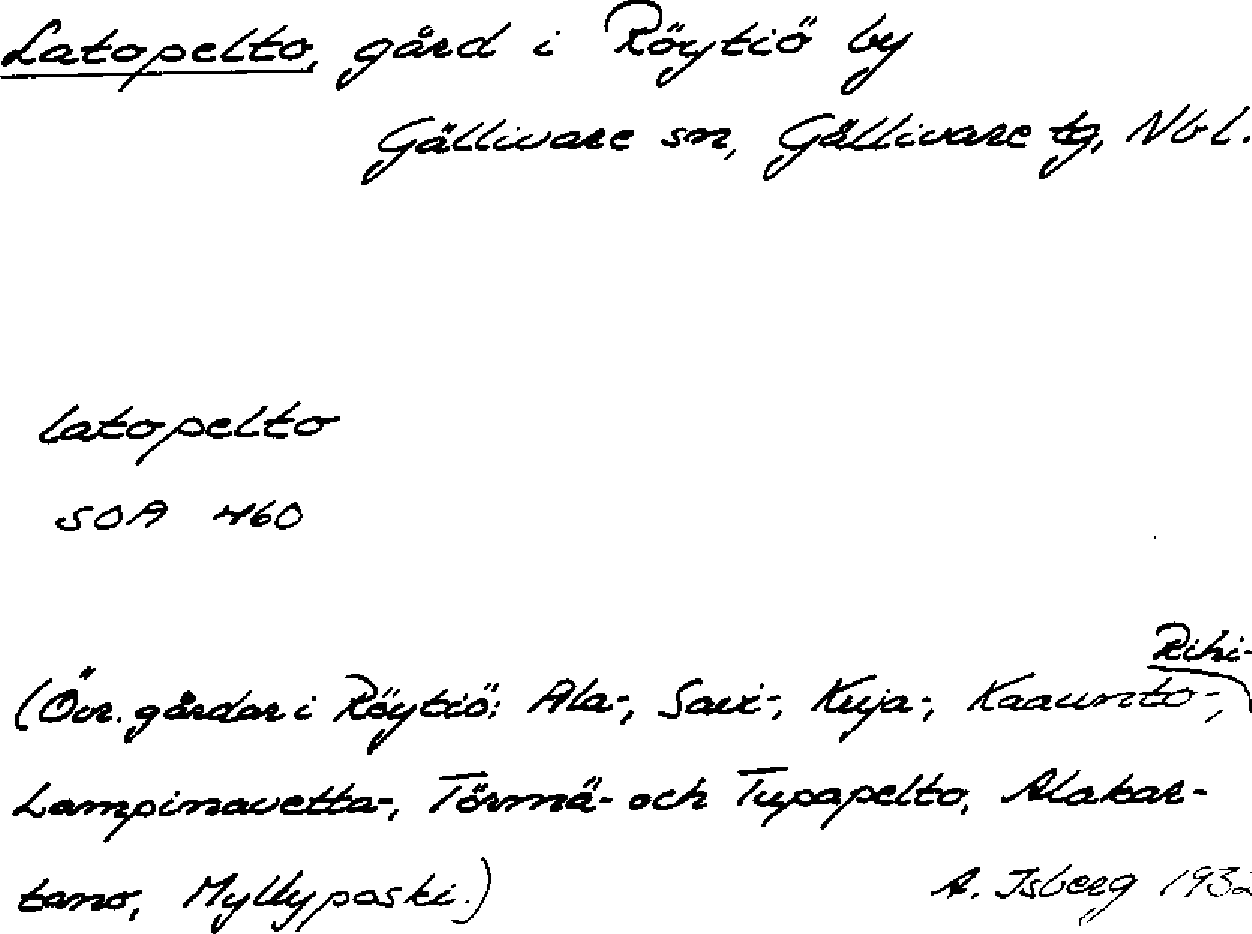 Latopelto, gård i Röytiö by
Gällivare sn, Gällivare tg, Nbl.
latopelto
SOA 460
Riihi-
(Övr. gårdar i Röytiö: Ala-, Savi-, Kuja-, Kaaunto-,
Lampinavetta-, Törmä- och Tupapelto, Alakar-
tano, Myllyposki.)
A. Isberg 1932